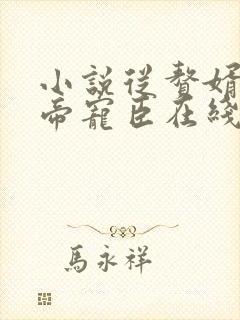 小説從贅婿
帝寵臣在綫
馬永祥